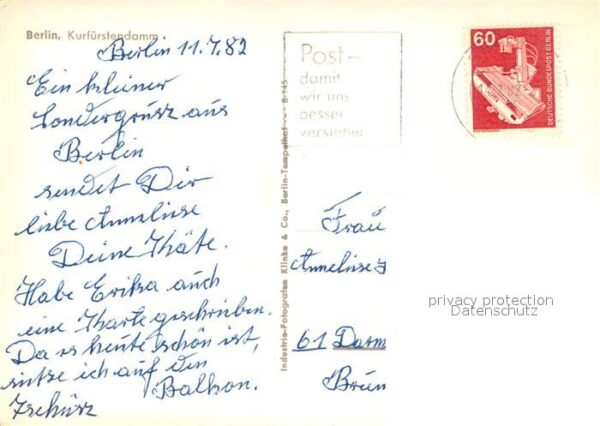 Berlin, Kurfürstendamm
Berlin 11.7.82
Ein kleiner
Sondergrusz aus
Berlin
sendet Dir
liebe Anneliese
Deine Käte.
Habe Erika auch
eine Karte geschrieben.
Da es heute schön ist,
sitze ich auf den
Balkon.
Tschüsz
Industrie-Fotografen Klinke & Co., Berlin-Tempelhof B 145
Post –
damit
wir uns
besser
verstehen
60
DEUTSCHE BUNDESPOST BERLIN
Frau
Anneliese
61 Darm
privacy protection
Datenschutz